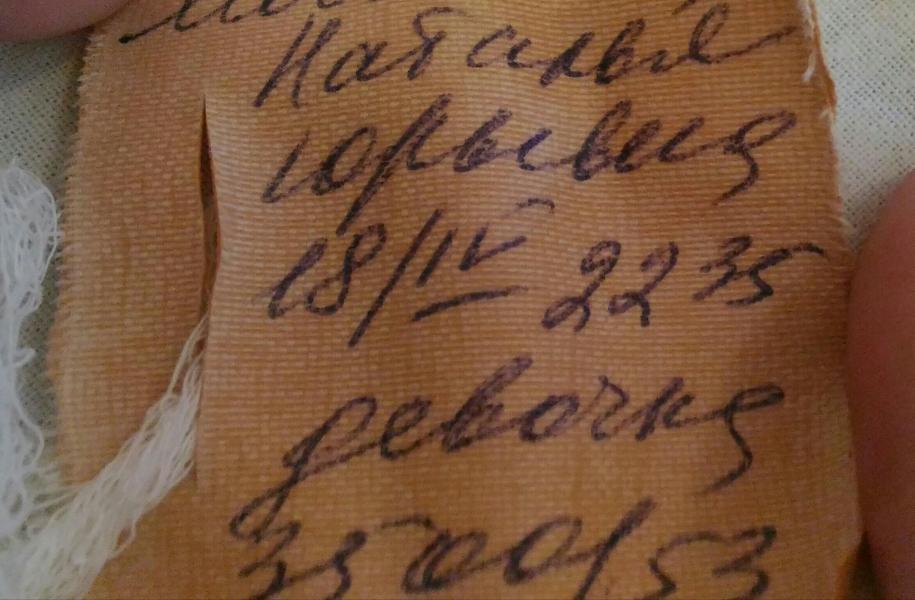 Наталья
Юрьевна
18/IV 22 35
девочка
3500/53